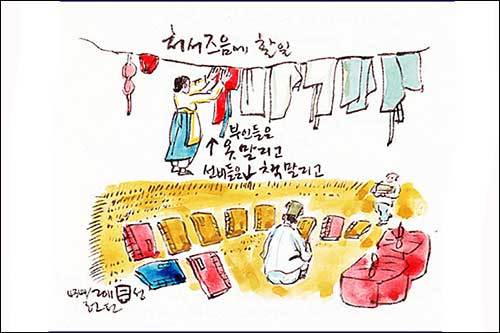 처서즈음에 할일
부인들은
↑ 옷 말리고
선비들은↓ 책 말리고